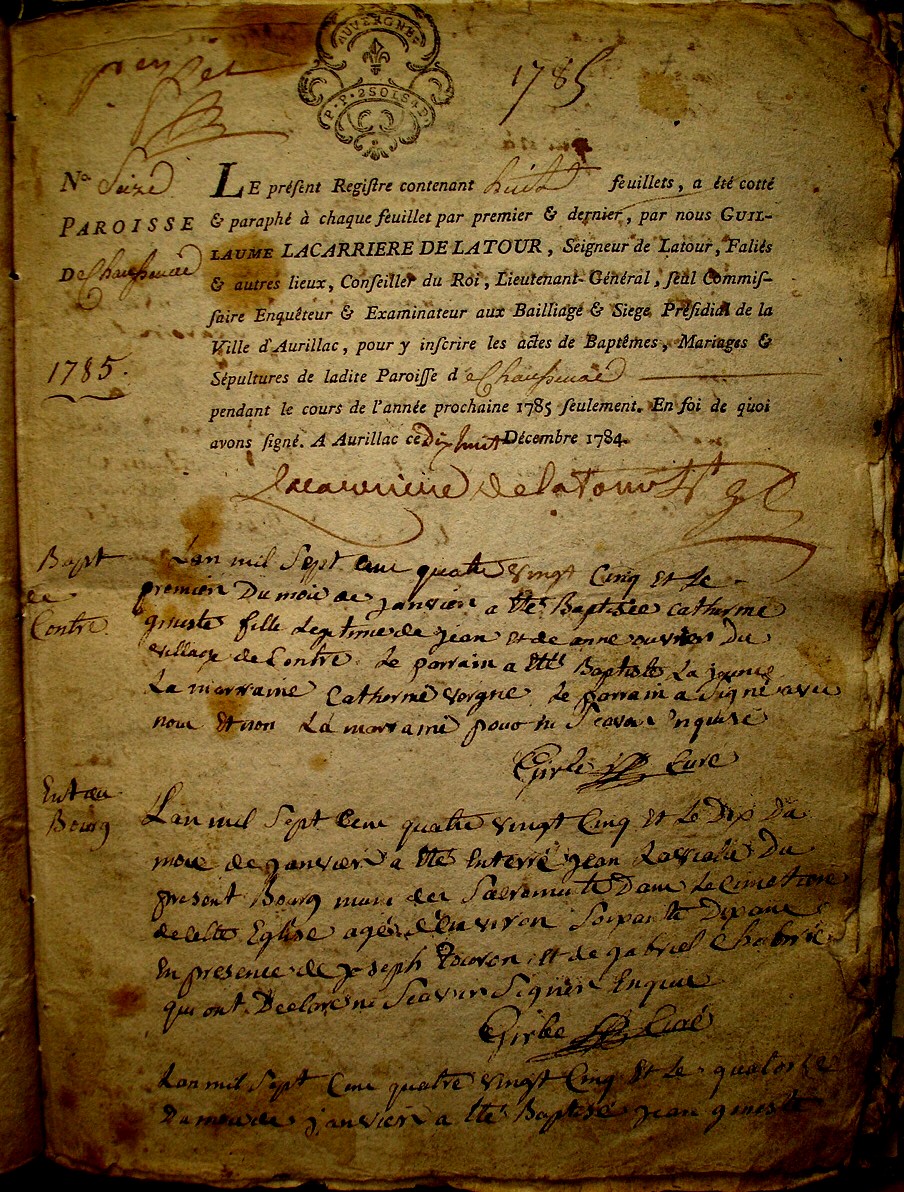 AUVERGNE
P. P. 2 SOLS 4 D.
1785
Nº. Seize
PAROISSE
De Chaussenac
1785.
LE préſent Regiſtre contenant huit feuillets, a été cotté
& paraphé à chaque feuillet par premier & dernier, par nous GUIL-
LAUME LACARRIERE DE LATOUR, Seigneur de Latour, Faliés
& autres lieux, Conſeiller du Roi, Lieutenant-Général, ſeul Commiſ-
ſaire Enquêteur & Examinateur aux Bailliage & Siege Préſidial de la
Ville d'Aurillac, pour y inſcrire les actes de Baptêmes, Mariages &
Sépultures de ladite Paroiſſe de Chaussenac
pendant le cours de l'année prochaine 1785 ſeulement. En foi de quoi
avons ſigné. A Aurillac ce Dix huit Décembre 1784.
Lacarriere de latour
Bapt
de
Contre
Lan mil Sept Cent quatre vingt Cinq Et Le
premier Du mois de janvier a Eté Baptisée Catherine
fille Legitime de jean Et de anne ouvrier Du
village de Contre Le parrain a Eté Baptiste La jeunie
La marraine Catherine vergne Le parrain a Signé avec
nous Et non La marraine pour ne Scavoir Enquise
Girbe Curé
Ent au
Bourg
Lan mil Sept Cent quatre vingt Cinq Et Le Dix Du
mois de janvier a Eté Enterré jean Lavialle Du
present Bourg muni des Sacrements Dans Le Cimetiere
de cette Eglise agé d'Environ Soixante Dix ans
En presence de joseph Et de gabriel Chabrie
qui ont Declaré ne Scavoir Signer Enquis
Girbe Curé
Lan mil Sept Cent quatre vingt Cinq Et Le quatorze
Du mois de janvier a Eté Baptisé jean